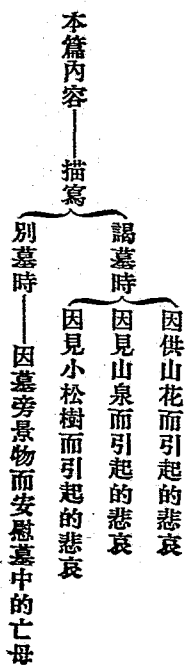 本篇內容——描寫
謁墓時
因供山花而引起的悲哀
因見山泉而引起的悲哀
因見小松樹而引起的悲哀
別墓時——因墓旁景物而安慰墓中的亡母